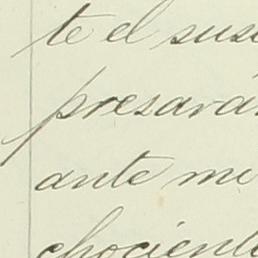 te el susc
presará
ante mi
chociento